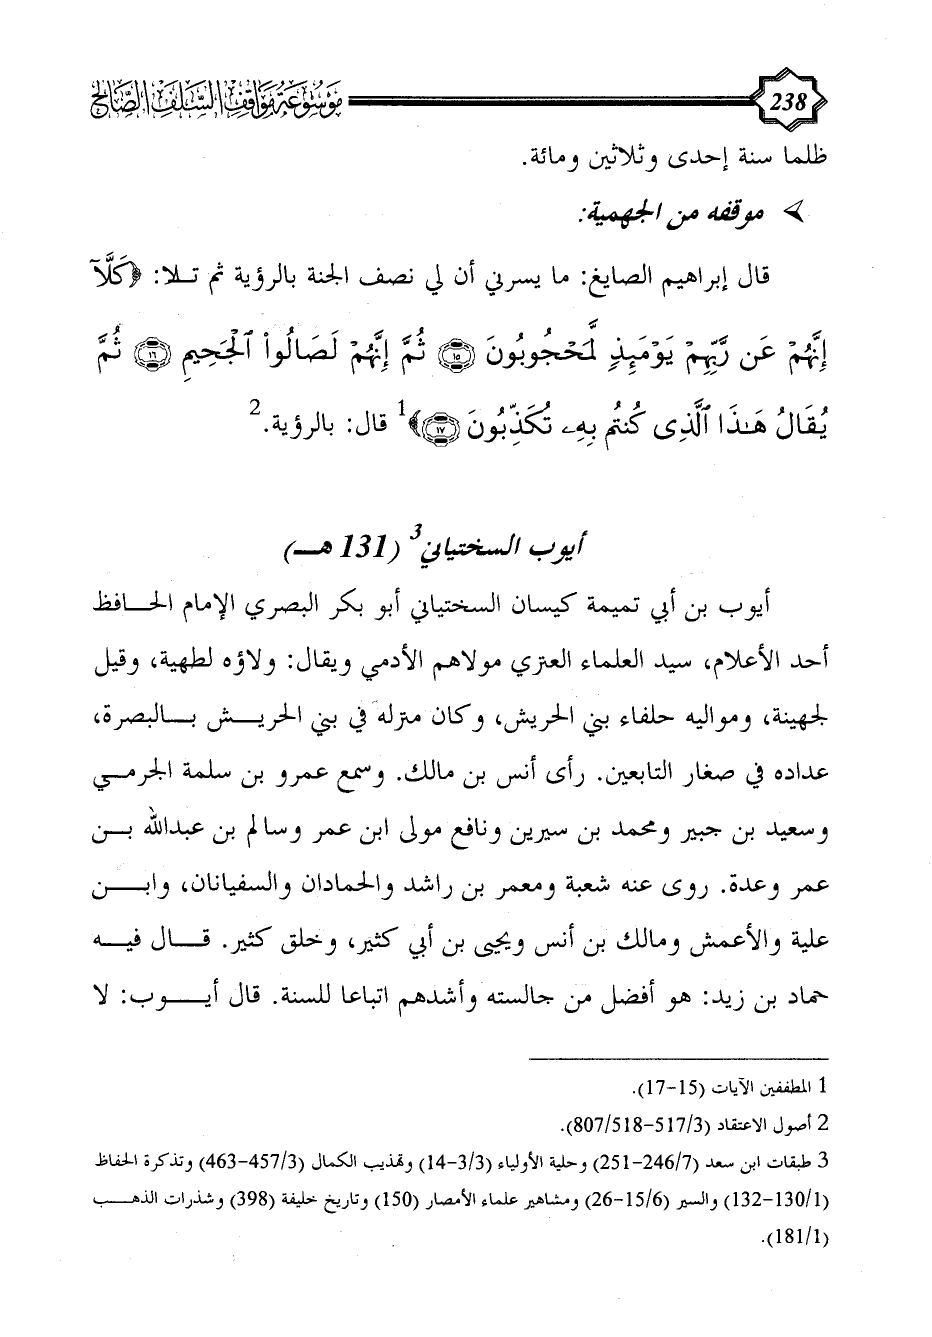 238 موسوعة مواقف السلف الصالح
ظلما سنة إحدى وثلاثين ومائة.
موقفه من الجهمية:
قال إبراهيم الصايغ: ما يسرني أن لي نصف الجنة بالرؤية ثم تـلا: ﴿كَلَّآ
إِنَّهُمْ عَن رَّبِّهِمْ يَوْمَئِذٍ لَّمَحْجُوبُونَ ١٥ ثُمَّ إِنَّهُمْ لَصَالُوا۟ ٱلْجَحِيمِ ١٦ ثُمَّ
يُقَالُ هَـٰذَا ٱلَّذِى كُنتُم بِهِۦ تُكَذِّبُونَ ١٧﴾1 قال: بالرؤية.2
أيوب السختياني3 (131 هــ)
أيوب بن أبي تميمة كيسان السختياني أبو بكر البصري الإمام الحـافظ
أحد الأعلام، سيد العلماء العتري مولاهم الأدمي ويقال: ولاؤه لطهية، وقيل
لجهينة، ومواليه حلفاء بني الحريش، وكان منزله في بني الحريـش بـالبصرة،
عداده في صغار التابعين. رأى أنس بن مالك. وسمع عمرو بن سلمة الجرمـي
وسعيد بن جبير ومحمد بن سيرين ونافع مولى ابن عمر وسالم بن عبدالله بـن
عمر وعدة. روى عنه شعبة ومعمر بن راشد والحمادان والسفيانان، وابـن
علية والأعمش ومالك بن أنس ويحيى بن أبي كثير، وخلق كثير. قـال فيـه
حماد بن زيد: هو أفضل من جالسته وأشدهم اتباعا للسنة. قال أيـوب: لا
1 المطففين الآيات (15-17).
2 أصول الاعتقاد (807/518-517/3).
3 طبقات ابن سعد (246/7-251) وحلية الأولياء (3/3-14) وتهذيب الكمال (457/3-463) وتذكرة الحفاظ
(130/1-132) والسير (15/6-26) ومشاهير علماء الأمصار (150) وتاريخ خليفة (398) وشذرات الذهـب
(181/1).